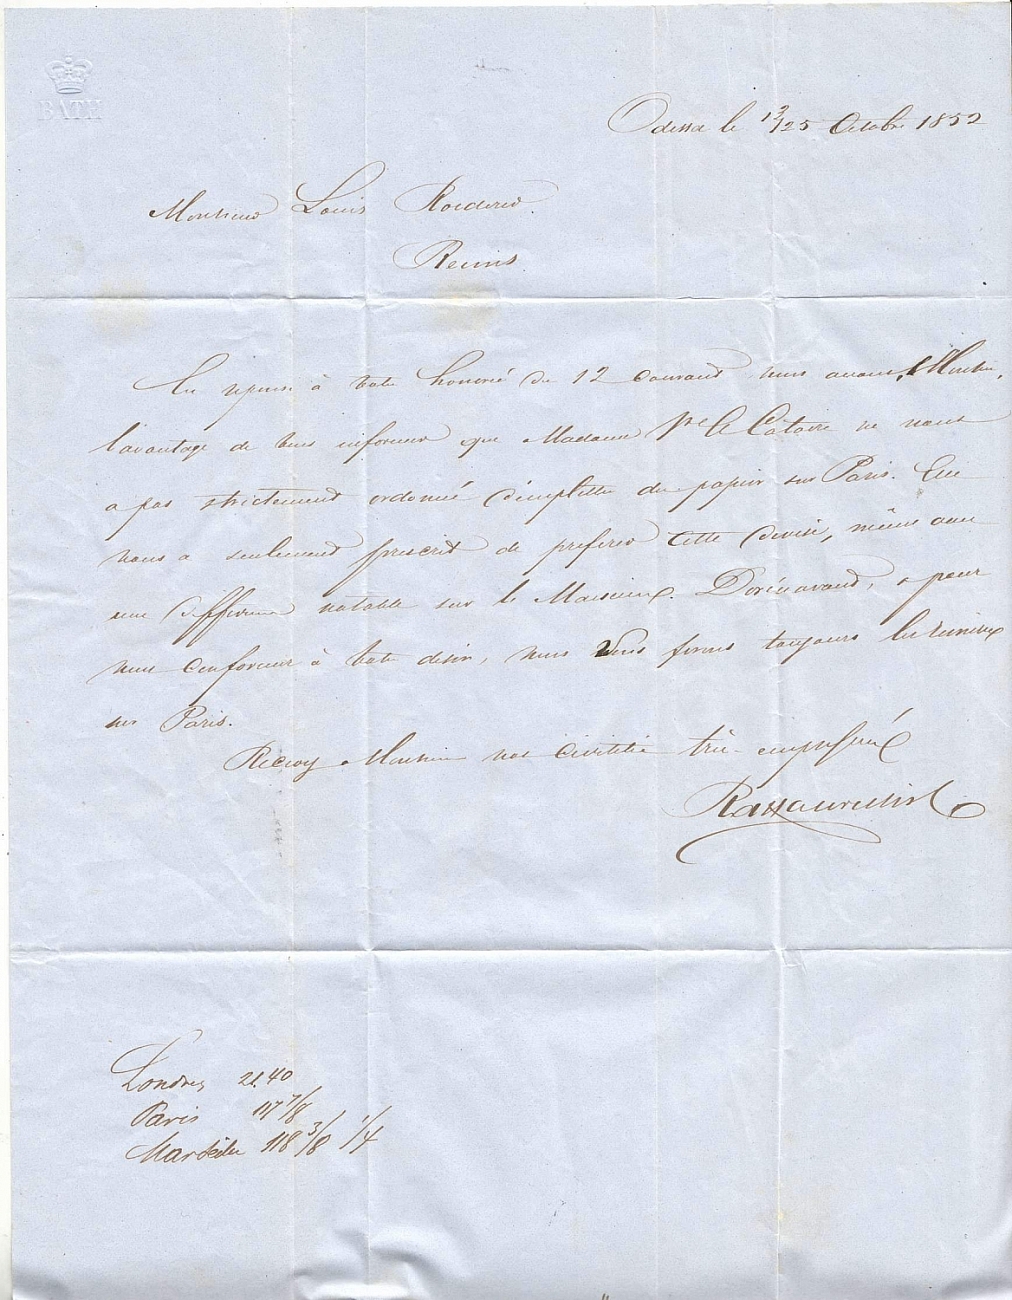 BATH
Odessa le 13/25 Octobre 1852
Monsieur Louis Roederer
Reims
En reponse à votre honoré du 12 courant nous avons, Monsieur,
l'avantage de vous informer que Madame Ve A Catoire ne nous
a pas strictement ordonné d'emplette du papier sur Paris. Elle
nous a seulement prescrit de preferer cette devise, même avec
une difference notable sur le Marseille. Dorénavant, pour
nous conformer à votre desir, nous vous ferons toujours les remises
sur Paris.
Recevez Monsieur nos civilités très-empressées
Londres 21.40
Paris 117 7/8
Marseille 118 3/8 1/4